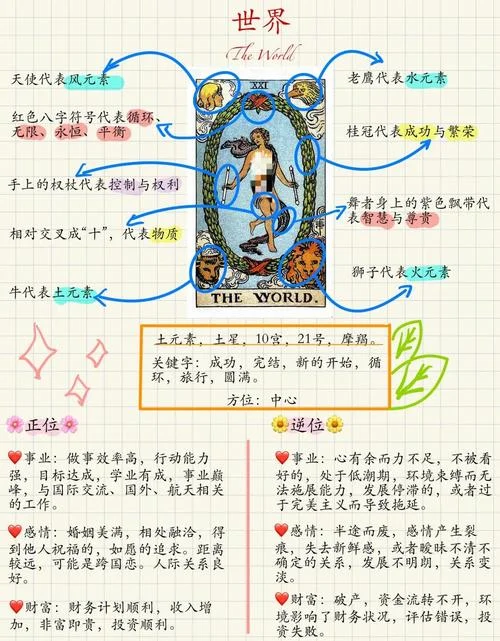 世界
The World
天使代表风元素
红色八字符号代表循环、
无限、永恒、平衡
手上的权杖代表控制与权利
相对交叉成“十”，代表物质
牛代表土元素
老鹰代表水元素
桂冠代表成功与繁荣
舞者身上的紫色飘带代
表智慧与尊贵
狮子代表火元素
XXI
THE WORLD.
土元素，土星，10宫，21号，摩羯。
关键字：成功，完结，新的开始，循
环，旅行，圆满。
方位：中心
正位
事业：做事效率高，行动能力
强，目标达成，学业有成，事业巅
峰，与国际交流、国外、航天相关
的工作。
感情：婚姻美满，相处融洽，得
到他人祝福的，如愿的追求。距离
较远，可能是跨国恋。人际关系良
好。
财富：财务计划顺利，收入增
加，非富即贵，投资顺利。
逆位
事业：心有余而力不足，不被看
好的，处于低潮期，环境束缚而无
法施展能力，发展停滞的，或者过
于完美主义而导致拖延。
感情：半途而废，感情产生裂
痕，失去新鲜感，或者暧昧不清不
确定的关系，发展不明朗，关系变
淡。
财富：破产，资金流转不开，环
境影响了财务状况，评估错误，投
资失败。